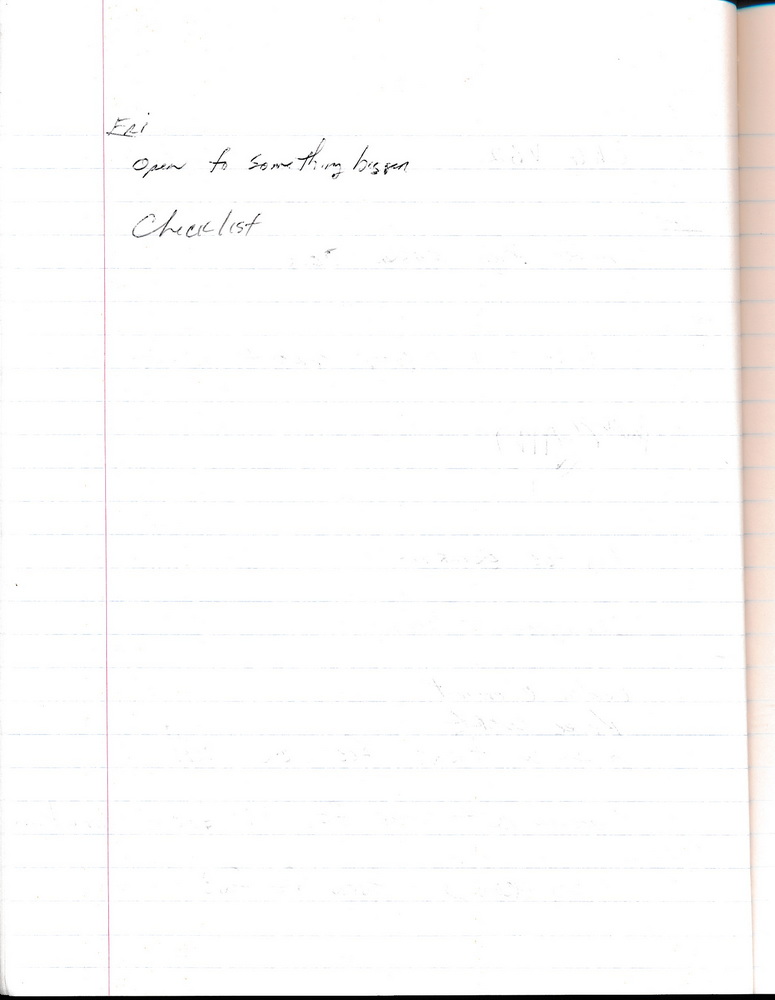 Eri
Open to something bigger
Checklist